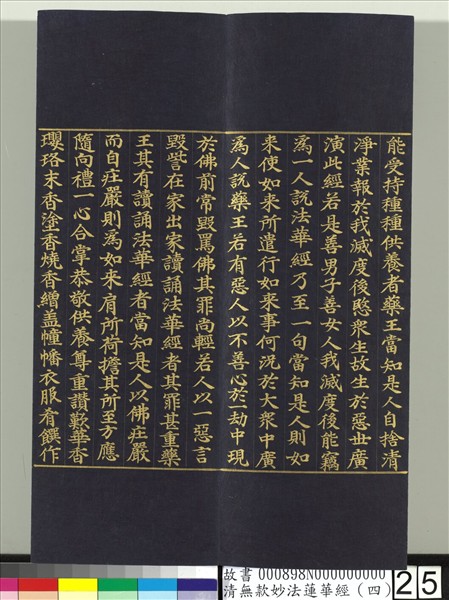 能受持種種供養者藥王當知是人自捨清
淨業報於我滅度後愍衆生故生於惡世廣
演此經若是善男子善女人我滅度後能竊
為一人說法華經乃至一句當知是人則如
来使如来所遣行如来事何況於大衆中廣
為人說藥王若有惡人以不善心於一劫中現
於佛前常毀罵佛其罪尚輕若人以一惡言
毀呰在家出家讀誦法華經者其罪甚重藥
王其有讀誦法華經者當知是人以佛莊嚴
而自莊嚴則為如来肩所荷擔其所至方應
隨向禮一心合掌恭敬供養尊重讚歎華香
瓔珞末香塗香燒香繒盖幢幡衣服肴饌作
故書 000898N000000000
清無款妙法蓮華經（四）
25